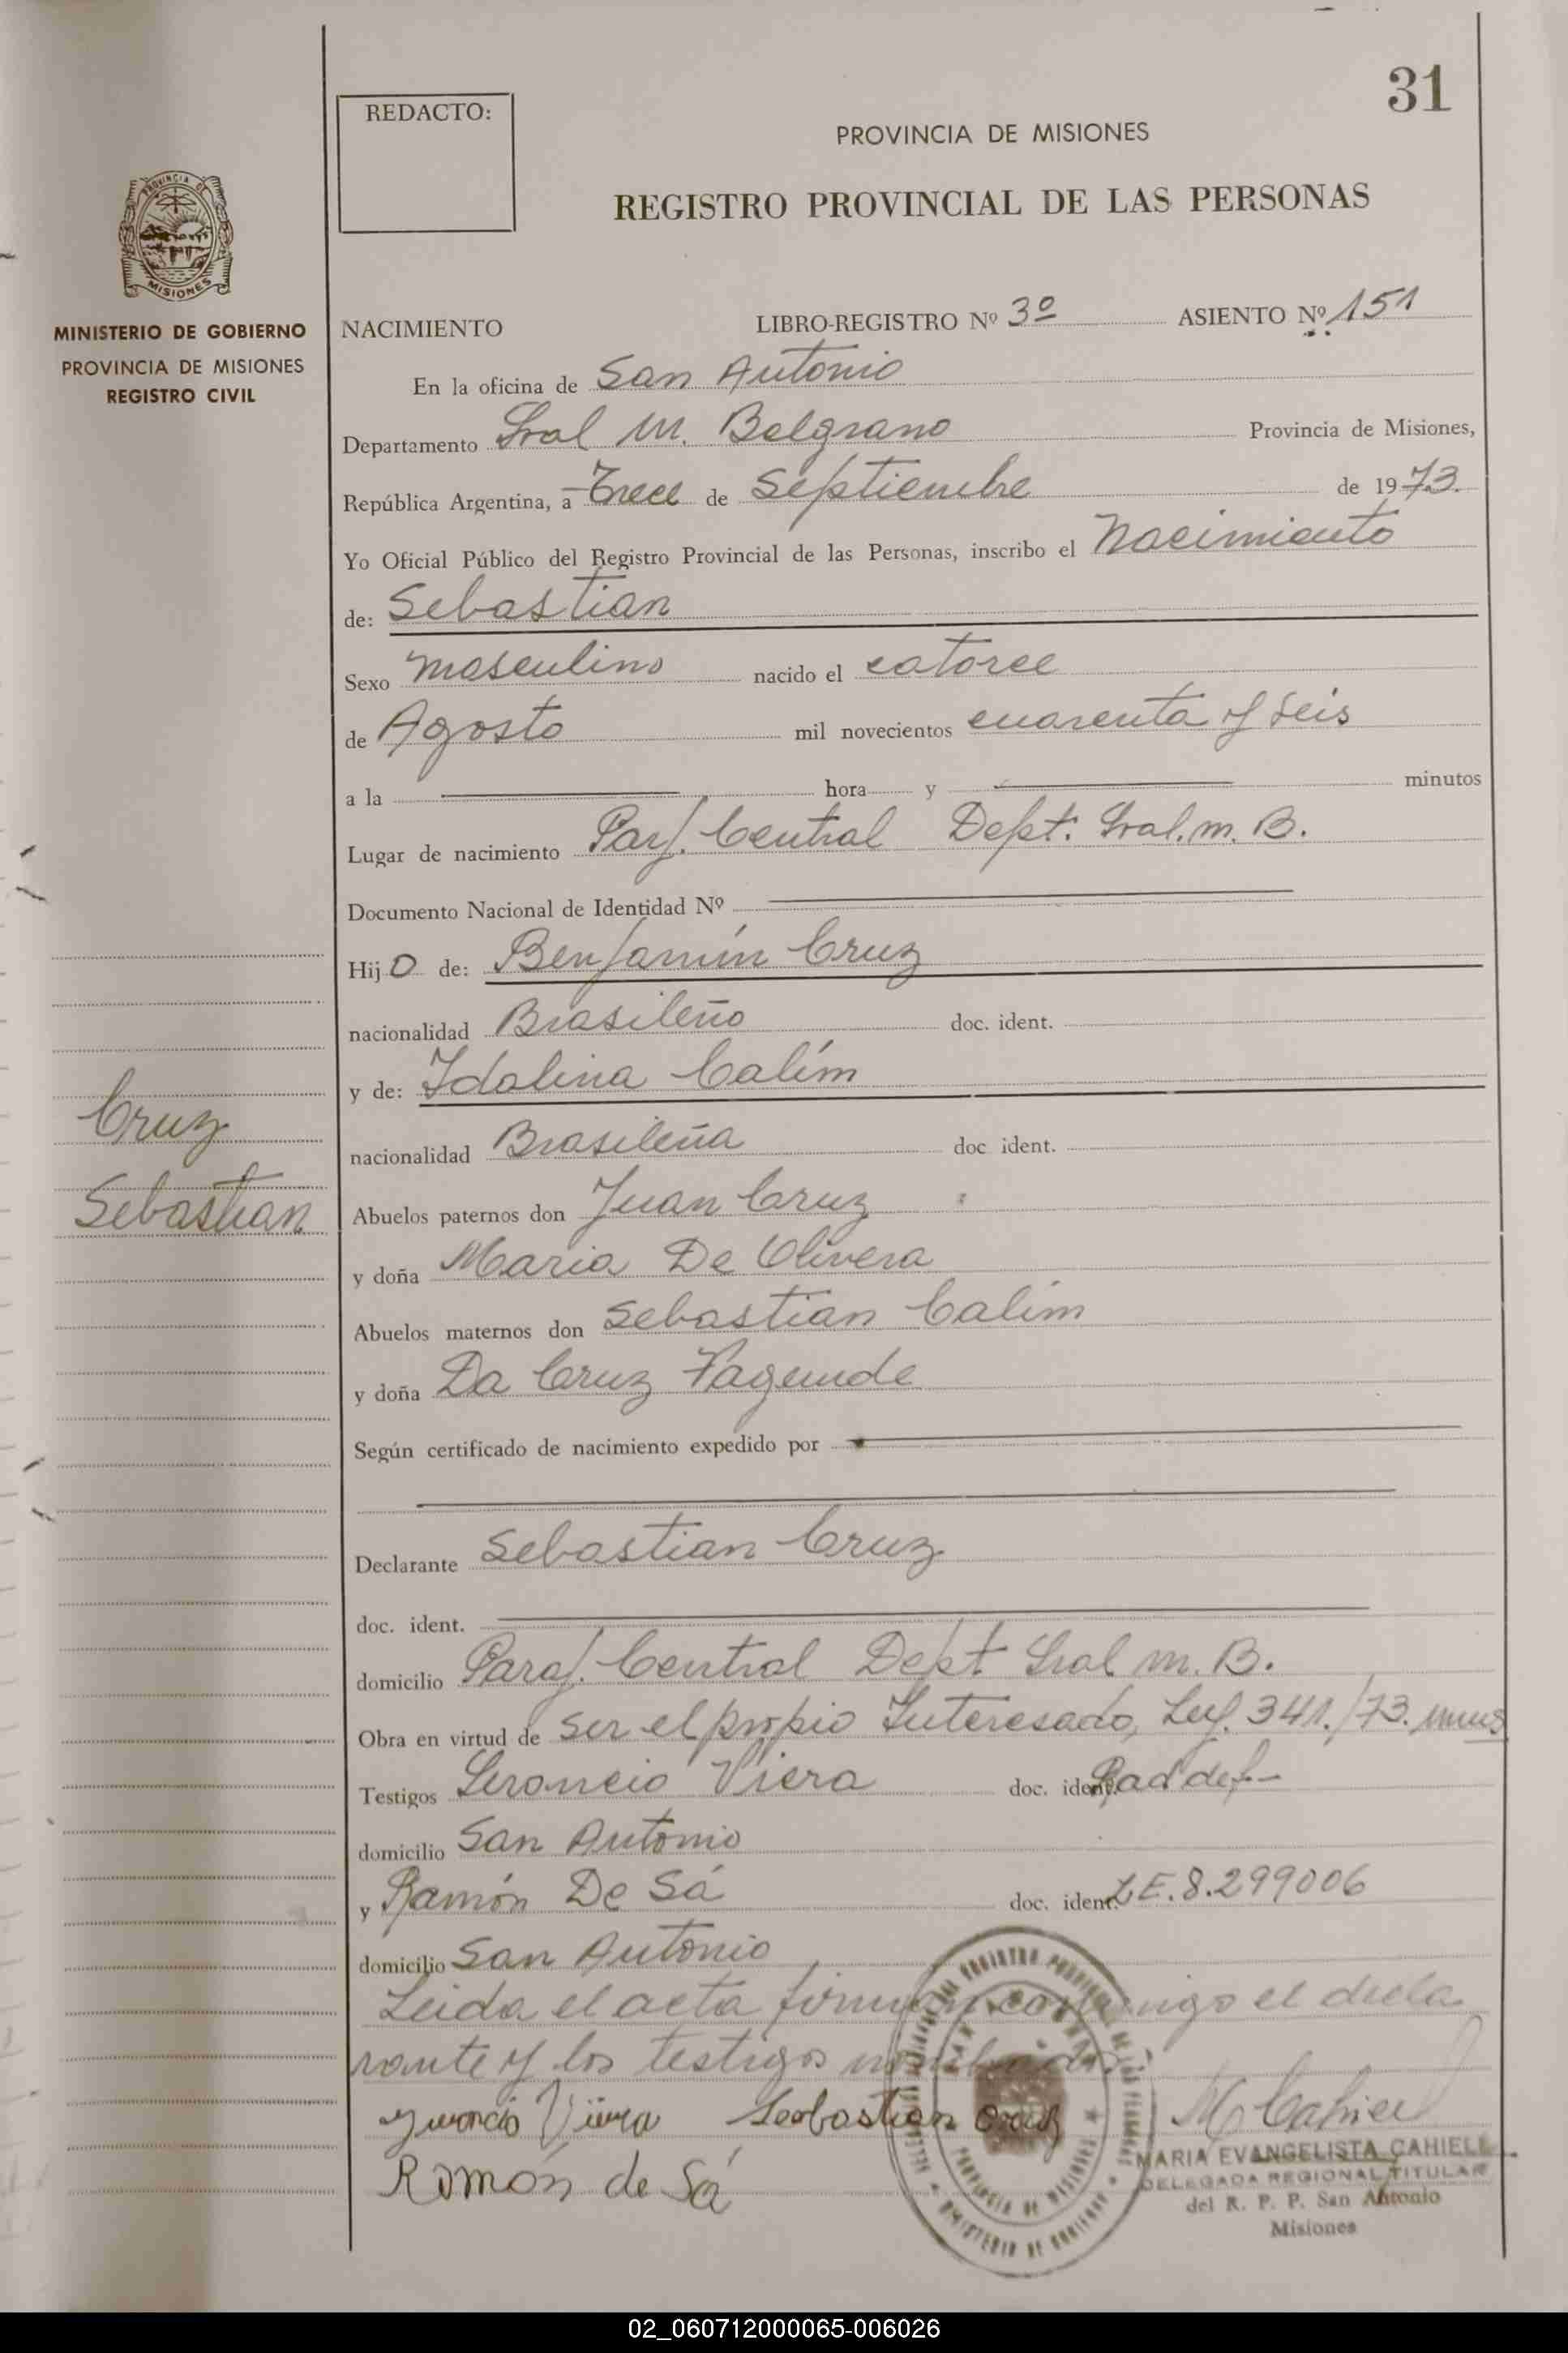 31
REDACTO:
PROVINCIA DE MISIONES
REGISTRO PROVINCIAL DE LAS PERSONAS
MISIONES
MINISTERIO DE GOBIERNO
PROVINCIA DE MISIONES
REGISTRO CIVIL
NACIMIENTO LIBRO-REGISTRO Nº 3º ASIENTO Nº 151
En la oficina de San Antonio
Departamento Gral M. Belgrano Provincia de Misiones,
República Argentina, a Trece de Septiembre de 1973.
Yo Oficial Público del Registro Provincial de las Personas, inscribo el Nacimiento
de: Sebastian
Sexo masculino nacido el catorce
de Agosto mil novecientos cuarenta y seis
a la hora y minutos
Lugar de nacimiento Parj. Central Dept. Gral. m. B.
Documento Nacional de Identidad Nº
Hijo de: Benjamín Cruz
nacionalidad Brasileño doc. ident.
y de: Idalina Calím
nacionalidad Brasileña doc ident.
Cruz
Sebastian
Abuelos paternos don Juan Cruz
y doña Maria De Olivera
Abuelos maternos don Sebastian Calim
y doña Da Cruz Fagunde
Según certificado de nacimiento expedido por
Declarante Sebastian Cruz
doc. ident.
domicilio Paraj. Central Dept Gral m. B.
Obra en virtud de ser el propio Interesado, Ley. 341./73.
Testigos Viera doc. ident.
domicilio San Antonio
y Ramón De Sá doc. ident. L.E. 8.299006
domicilio San Antonio
Leida el acta firman conmigo el decla
rante y los testigos nombrados.
Viera Seobastian Cruz M Cahiell
Ramón de Sá
MARIA EVANGELISTA CAHIELL
DELEGADA REGIONAL TITULAR
del R. P. P. San Antonio
Misiones
02_060712000065-006026